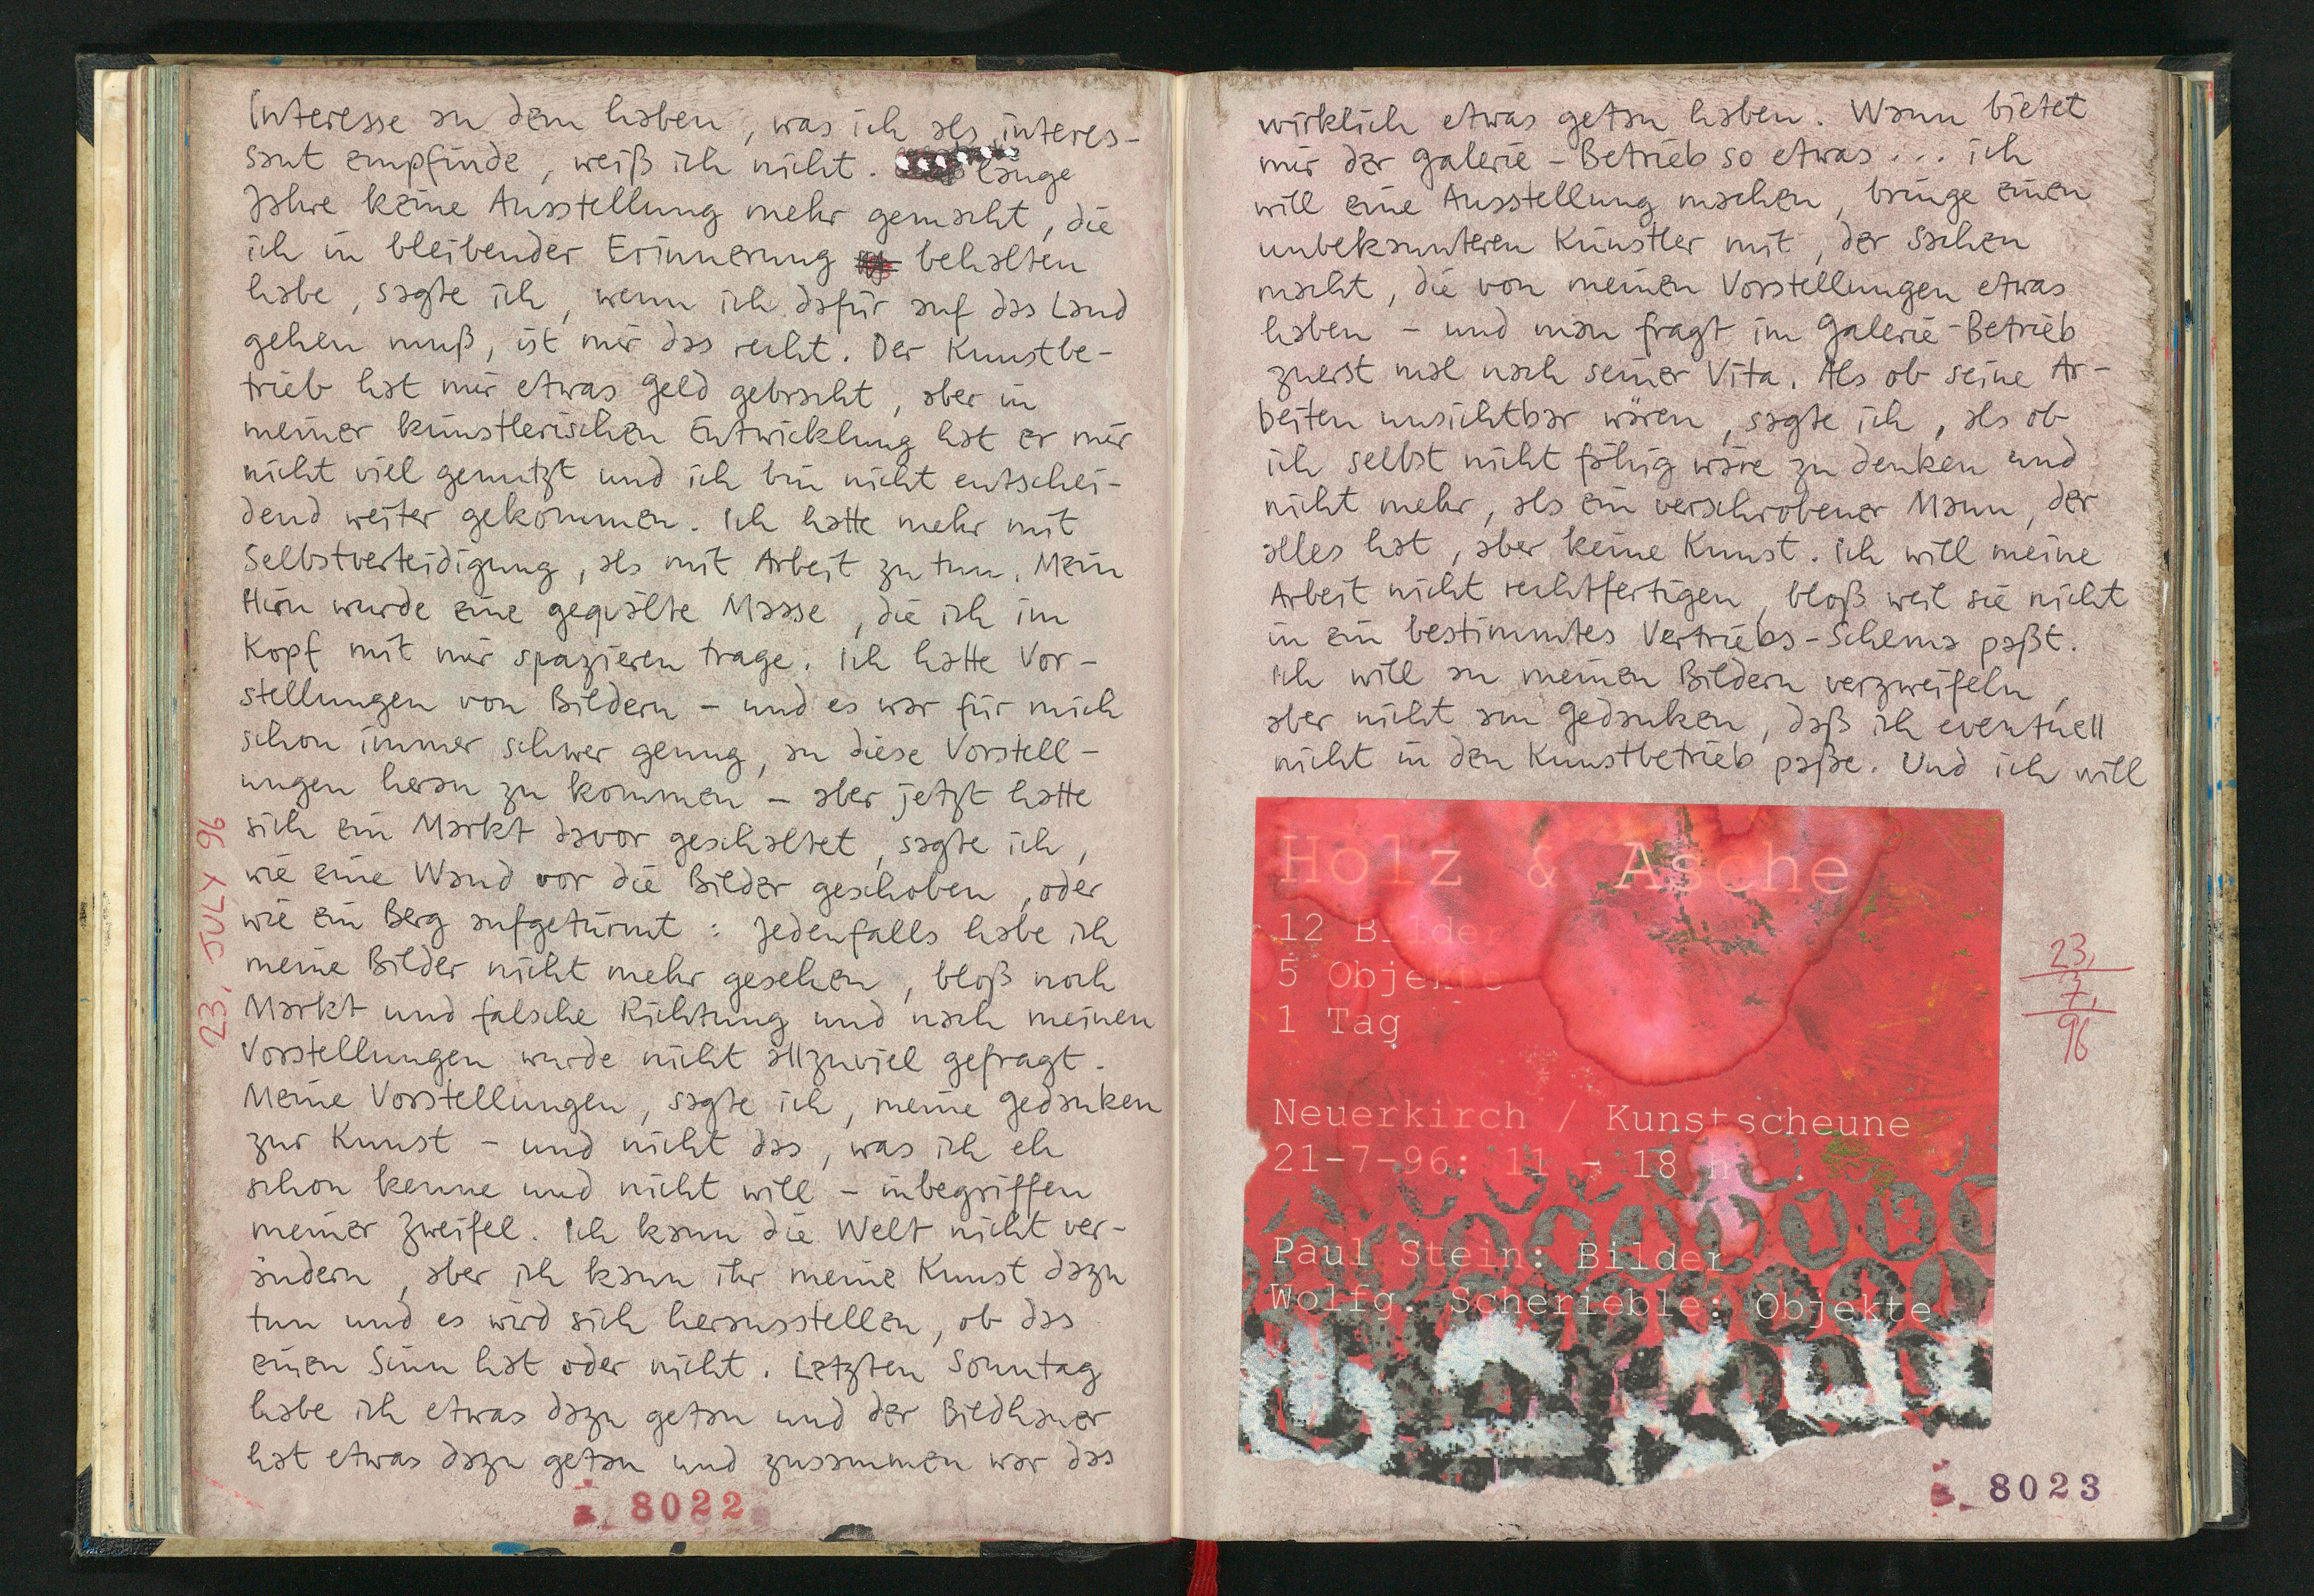 Interesse an dem haben, was ich als interes-
sant empfinde, weiß ich nicht. lange
Jahre keine Ausstellung mehr gemacht, die
ich in bleibender Erinnerung behalten
habe, sagte ich, wenn ich dafür auf das Land
gehen muß, ist mir das recht. Der Kunstbe-
trieb hat mir etwas Geld gebracht, aber in
meiner künstlerischen Entwicklung hat er mir
nicht viel genutzt und ich bin nicht entschei-
dend weiter gekommen. Ich hatte mehr mit
Selbstverteidigung, als mit Arbeit zu tun. Mein
Hirn wurde eine gequälte Masse, die ich im
Kopf mit mir spazieren trage. Ich hatte Vor-
stellungen von Bildern - und es war für mich
schon immer schwer genug, an diese Vorstell-
ungen heran zu kommen - aber jetzt hatte
sich ein Markt davor geschaltet, sagte ich,
wie eine Wand vor die Bilder geschoben, oder
wie ein Berg aufgetürmt: Jedenfalls habe ich
meine Bilder nicht mehr gesehen, bloß noch
Markt und falsche Richtung und nach meinen
Vorstellungen wurde nicht allzuviel gefragt.
Meine Vorstellungen, sagte ich, meine Gedanken
zur Kunst - und nicht das, was ich eh
schon kenne und nicht will - inbegriffen
meiner Zweifel. Ich kann die Welt nicht ver-
ändern, aber ich kann ihr meine Kunst dazu
tun und es wird sich herausstellen, ob das
einen Sinn hat oder nicht. Letzten Sonntag
habe ich etwas dazu getan und der Bildhauer
hat etwas dazu getan und zusammen war das
23. JULY 96
8022
wirklich etwas getan haben. Wann bietet
mir der Galerie-Betrieb so etwas... ich
will eine Ausstellung machen, bringe einen
unbekannteren Künstler mit, der Sachen
macht, die von meinen Vorstellungen etwas
haben - und man fragt im Galerie-Betrieb
zuerst mal nach seiner Vita. Als ob seine Ar-
beiten unsichtbar wären, sagte ich, als ob
ich selbst nicht fähig wäre zu denken und
nicht mehr, als ein verschrobener Mann, der
alles hat, aber keine Kunst. Ich will meine
Arbeit nicht rechtfertigen, bloß weil sie nicht
in ein bestimmtes Vertriebs-Schema paßt.
Ich will an meinen Bildern verzweifeln,
aber nicht am Gedanken, daß ich eventuell
nicht in den Kunstbetrieb paße. Und ich will
Holz & Asche
12 Bilder
5 Objekte
1 Tag
Neuerkirch / Kunstscheune
21-7-96: 11 - 18 h
Paul Stein: Bilder
Wolfg. Scherieble: Objekte
23.
7.
96
8023